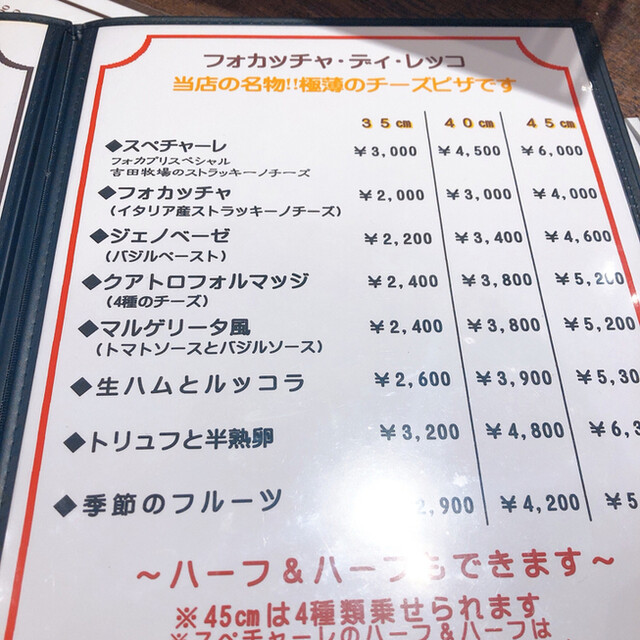 フォカッチャ・ディ・レッコ
当店の名物!!極薄のチーズピザです
35㎝ 40㎝ 45㎝
◆スペチャーレ ¥3,000 ¥4,500 ¥6,000
フォカブリスペシャル
吉田牧場のストラッキーノチーズ
◆フォカッチャ ¥2,000 ¥3,000 ¥4,000
(イタリア産ストラッキーノチーズ)
◆ジェノベーゼ ¥2,200 ¥3,400 ¥4,600
(バジルペースト)
◆クアトロフォルマッジ ¥2,400 ¥3,800 ¥5,200
(4種のチーズ)
◆マルゲリータ風 ¥2,400 ¥3,800 ¥5,200
(トマトソースとバジルソース)
◆生ハムとルッコラ ¥2,600 ¥3,900 ¥5,30
◆トリュフと半熟卵 ¥3,200 ¥4,800 ¥6,3
◆季節のフルーツ 2,900 ¥4,200 ¥5
～ハーフ&ハーフもできます～
※45cmは4種類乗せられます
※スペチャーレのハーフ&ハーフは